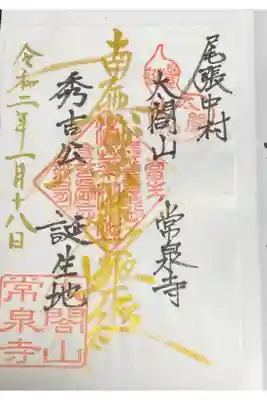 尾張中村
太閤山 常泉寺
南無妙法蓮華経
秀吉公 誕生地
令和二年一月十八日
閤山
常泉寺